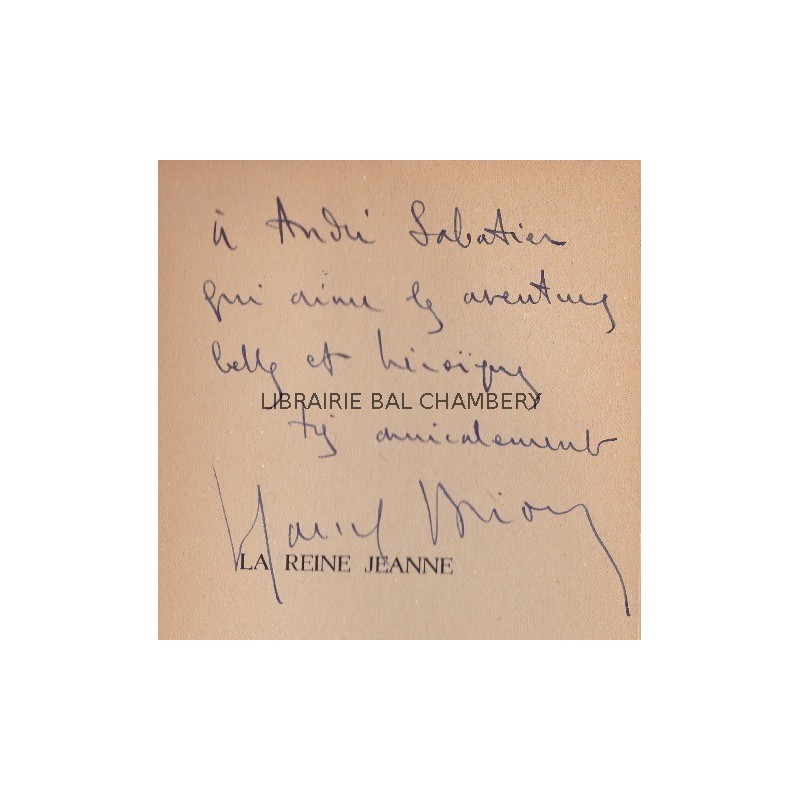 à André Sabatier
qui aime les aventures
belles et héroïques
LIBRAIRIE BAL CHAMBERY
très amicalement
Marcel Brion
LA REINE JEANNE